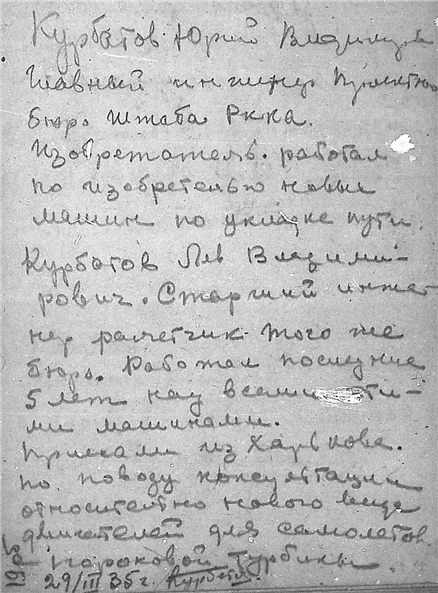 Курбатов Юрий Владимир
Главный инженер Проектно
бюро Штаба Ркка.
Изобретатель. работал
по изобретению новых
машин по укладке пути.
Курбатов Лев Владими-
рович. Старший инже-
нер расчетчик того же
бюро. Работал последние
5 лет над всеми эти-
ми машинами.
Приехали из Харькова.
по поводу консультации
относительно нового вида
двигателей для самолетов
пороховой турбины.
29/III 35 г. Курбатов.